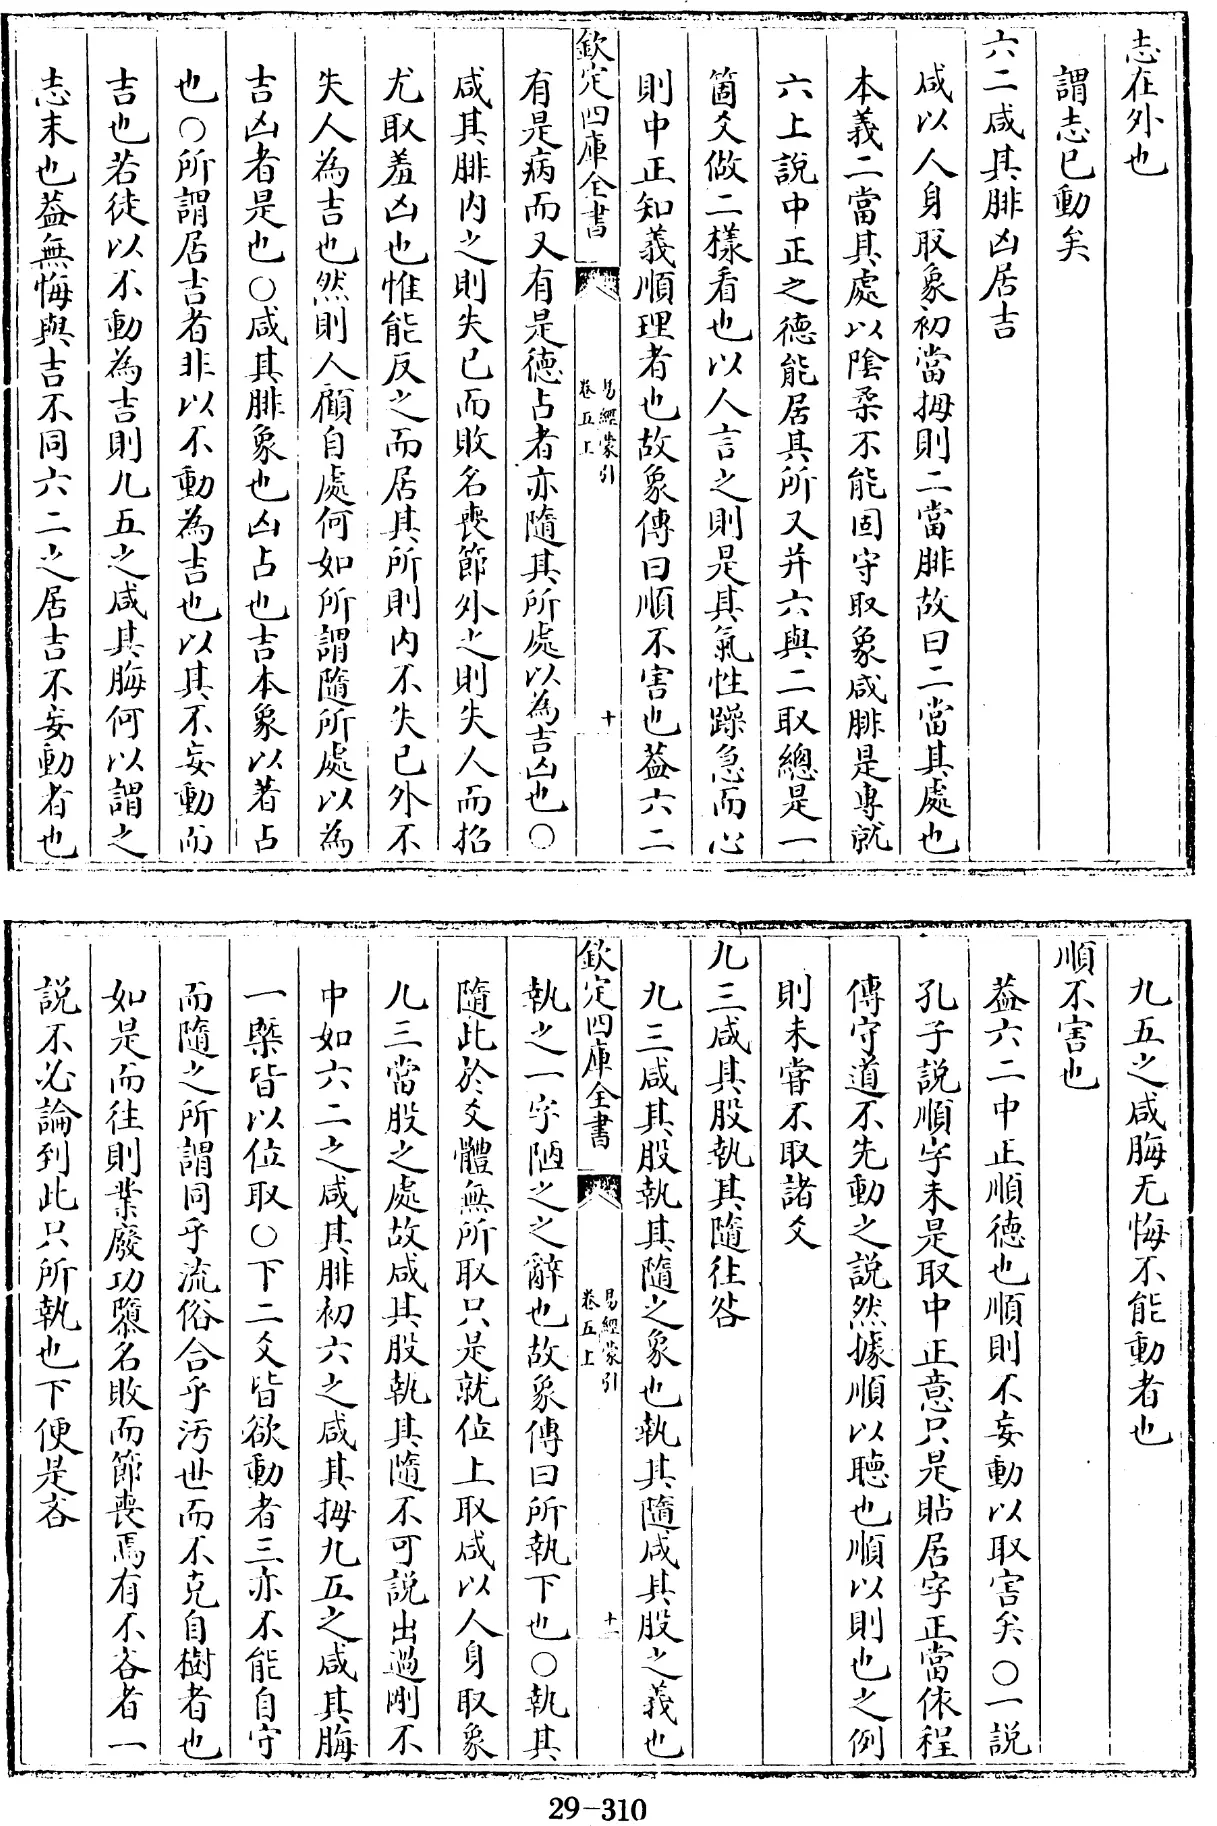 志在外也
謂志已動矣
六二咸其腓凶居吉
咸以人身取象初當拇則二當腓故曰二當其處也
本義二當其處以陰柔不能固守取象咸腓是專就
六上說中正之德能居其所又并六與二取總是一
箇爻做二樣看也以人言之則是其氣性躁急而心
則中正知義順理者也故象傳曰順不害也葢六二
欽定四庫全書
易經蒙引
卷五上
十
有是病而又有是德占者亦隨其所處以為吉凶也〇
咸其腓内之則失已而敗名喪節外之則失人而招
尤取羞凶也惟能反之而居其所則内不失已外不
失人為吉也然則人顧自處何如所謂隨所處以為
吉凶者是也〇咸其腓象也凶占也吉本象以著占
也〇所謂居吉者非以不動為吉也以其不妄動而
吉也若徒以不動為吉則九五之咸其脢何以謂之
志末也葢無悔與吉不同六二之居吉不妄動者也
九五之咸脢无悔不能動者也
順不害也
葢六二中正順德也順則不妄動以取害矣〇一說
孔子說順字未是取中正意只是貼居字正當依程
傳守道不先動之說然據順以聽也順以則也之例
則未嘗不取諸爻
九三咸其股執其隨往吝
九三咸其股執其隨之象也執其隨咸其股之義也
欽定四庫全書
易經蒙引
卷五上
十一
執之一字陋之之辭也故象傳曰所執下也〇執其
隨此於爻體無所取只是就位上取咸以人身取象
九三當股之處故咸其股執其隨不可說出過剛不
中如六二之咸其腓初六之咸其拇九五之咸其脢
一槩皆以位取〇下二爻皆欲動者三亦不能自守
而隨之所謂同乎流俗合乎汚世而不克自樹者也
如是而往則業廢功隳名敗而節喪焉有不吝者一
說不必論到此只所執也下便是吝
29-310